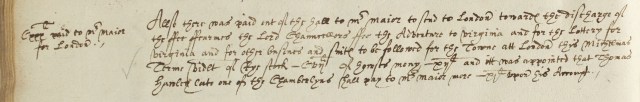 paid to mr Maior
for London
Allso there was paid out of the hall to mr Maior to send to London towards the discharge of
the ffee ffarmes the Lord Chauncellors ffee the Adventure to virginia and for the Lottery for
virginia and for other busines and suits to be followed for the Towne att London this Michaelmas
Terme videlt of the stock of mony and itt was appointed that Thomas
Hamlet late one of the Chamberlyns shall pay to mr Maior more upon his Account